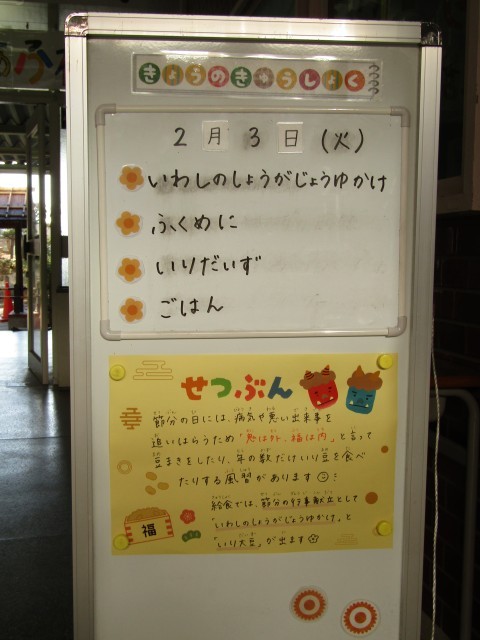 きょうのきゅうしょく
2月3日(火)
いわしのしょうがじょうゆかけ
ふくめに
いりだいず
ごはん
せつぶん
節分の日には、病気や悪い出来事を
追いはらうため「鬼は外、福は内」と言って
豆まきをしたり、年の数だけいり豆を食べ
たりする風習があります
給食では、節分の行事献立として
「いわしのしょうがじょうゆかけ」と
「いり大豆」が出ます
福